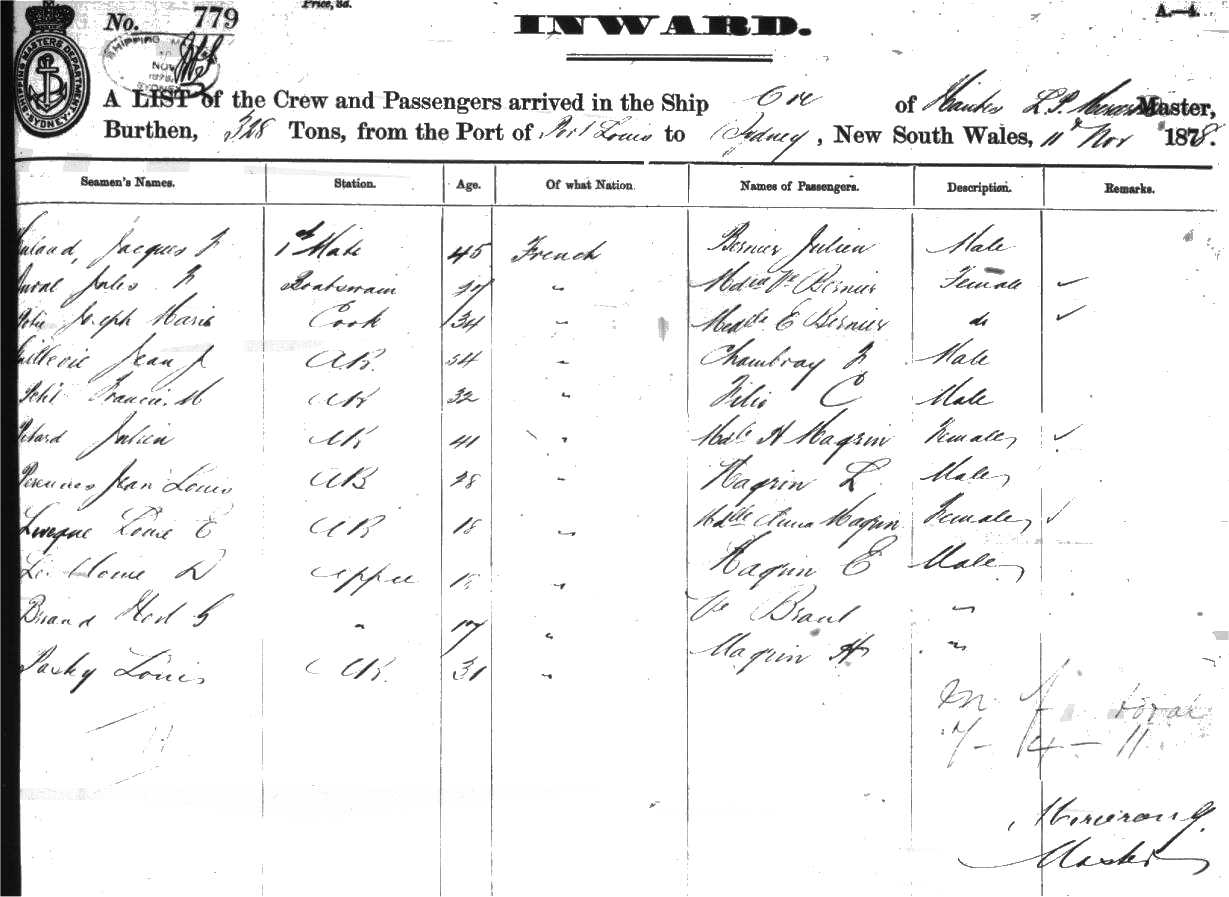 Price, 3d.
No. 779
INWARD.
A.—4.
SHIPPING MASTERS DEPARTMENT SYDNEY
SHIPPING
NOV
1878
SYDNEY
A LIST of the Crew and Passengers arrived in the Ship of Nantes L.P. Master,
Burthen, 328 Tons, from the Port of Port Louis to Sydney, New South Wales, 11th Nov 1878.
Seamen's Names. Station. Age. Of what Nation. Names of Passengers. Description. Remarks.
Jacques F 1st Mate 45 French Bernier Julien Male
Jules F Boatswain 27 " Mdme Ve Bernier Female ✓
Joseph Marie Cook 34 " Mdlle E Bernier do ✓
Jean J AB. 24 " Chambray F Male
Petit Francis M AB 32 " Felio C Male
Julien AB 41 " H Magrin Female ✓
Jean Louis AB 28 " Magrin L Male
Leveque Louis E AB 18 " Mdlle Anna Magrin Female ✓
Le D Appce " Magrin E Male
Briand G " 17 " Ve Braul "
Louis AB. 31 " Magrin H "
M F total
7 - 4 - 11
Master